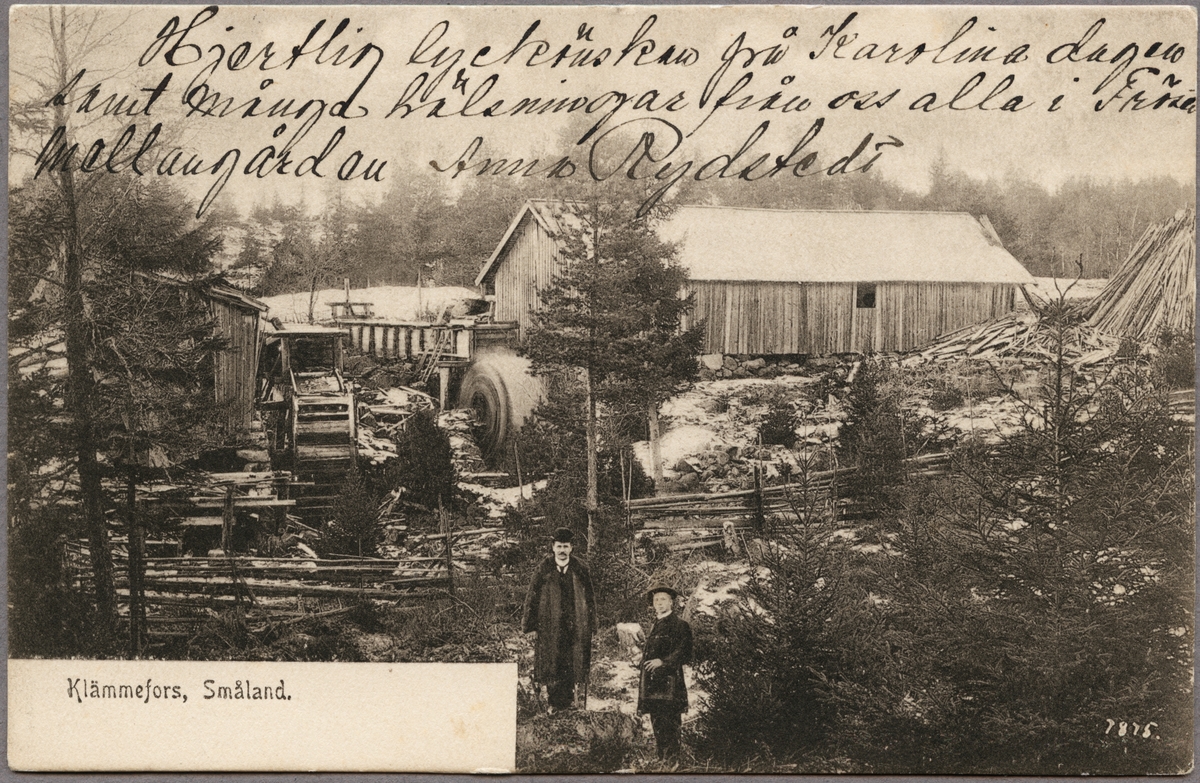 Hjertlig lyckönskan på Karolina dagen
samt många hälsningar från oss alla i Fröse
Mellangården Anna Rydstedt
Klämmefors, Småland.
7875.